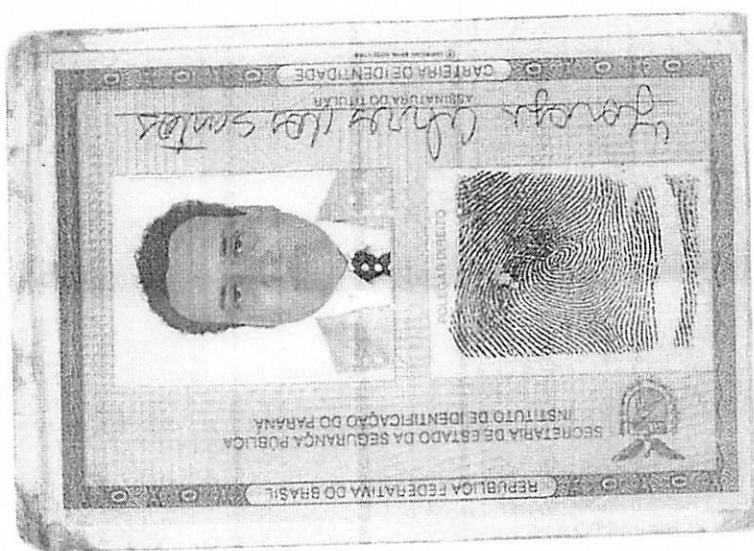 REPÚBLICA FEDERATIVA DO BRASIL
SECRETARIA DE ESTADO DA SEGURANÇA PÚBLICA
INSTITUTO DE IDENTIFICAÇÃO DO PARANÁ
POLEGAR DIREITO
dos Santos
ASSINATURA DO TITULAR
CARTEIRA DE IDENTIDADE